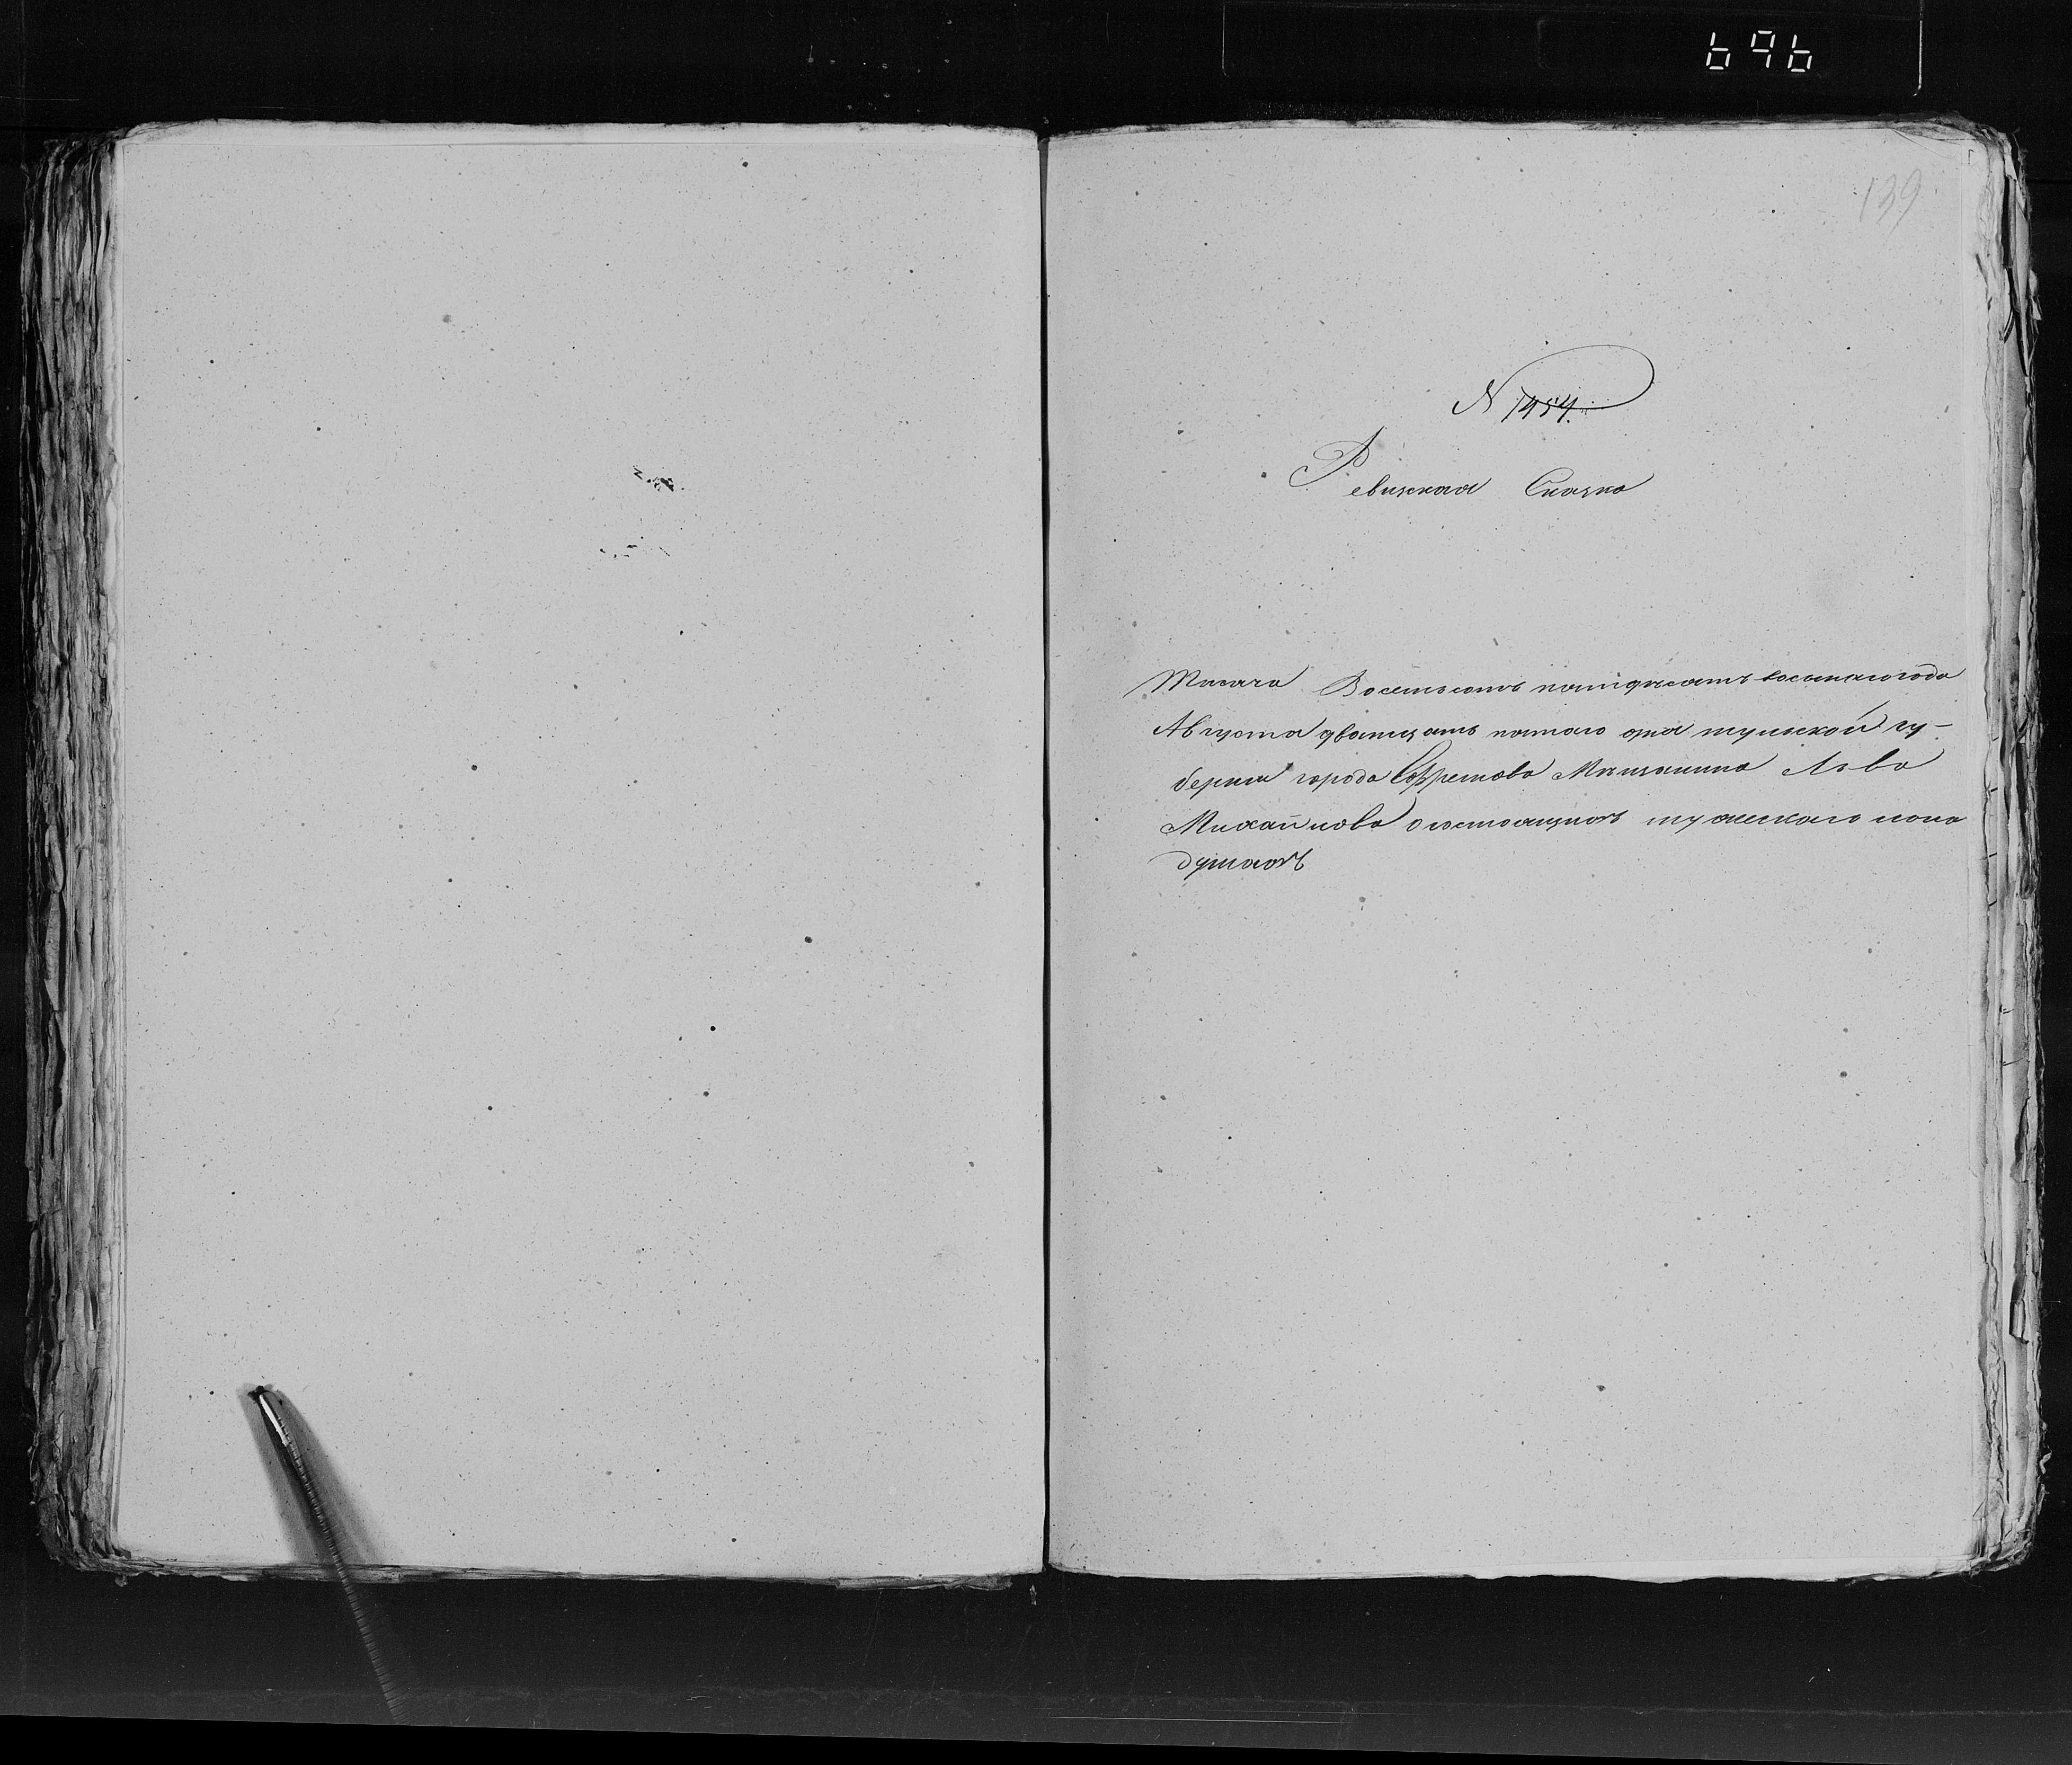 696
139
N 1454.
Ревизская Сказка
Тысяча Восемьсотъ пятдѣсятъ восьмаго года
Августа дватцать пятаго дня тульской гу-
бернии города Ефремова Мѣщанина Льва
Михайлова о состоящихъ мужескаго пола
душахъ